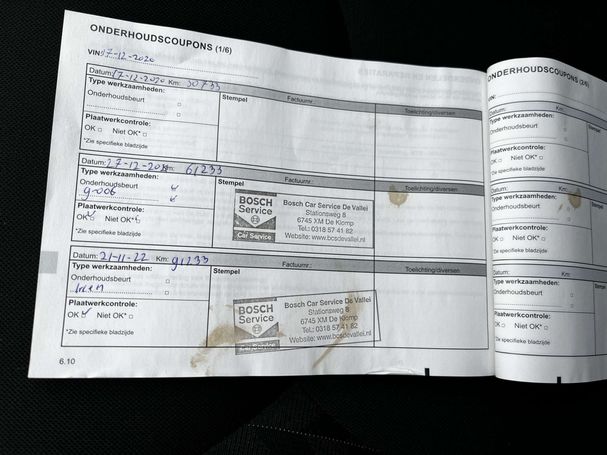 ONDERHOUDSCOUPONS (1/6)
VIN: 17-12-2020
Datum: 17-12-2020 Km: 30733
Type werkzaamheden:
Stempel
Factuurnr.:
Toelichting/diversen
Onderhoudsbeurt
Plaatwerkcontrole:
OK Niet OK*
*Zie specifieke bladzijde
Datum: 27-12-20 Km: 61233
Type werkzaamheden:
Stempel
Factuurnr.:
Toelichting/diversen
Onderhoudsbeurt
Plaatwerkcontrole:
OK Niet OK*
*Zie specifieke bladzijde
BOSCH
Service
Car Service
Bosch Car Service De Vallei
Stationsweg 8
6745 XM De Klomp
Tel.: 0318 57 41 82
Website: www.bcsdevallei.nl
Datum: 21-11-22 Km: 91233
Type werkzaamheden:
Stempel
Factuurnr.:
Toelichting/diversen
Onderhoudsbeurt
Plaatwerkcontrole:
OK Niet OK*
*Zie specifieke bladzijde
BOSCH
Service
Car Service
Bosch Car Service De Vallei
Stationsweg 8
6745 XM De Klomp
Tel.: 0318 57 41 82
Website: www.bcsdevallei.nl
6.10
ONDERHOUDSCOUPONS (2/6)
VIN:
Datum: Km:
Type werkzaamheden:
Onderhoudsbeurt
Plaatwerkcontrole:
OK Niet OK*
*Zie specifieke bladzijde
Datum: Km:
Type werkzaamheden:
Onderhoudsbeurt
Plaatwerkcontrole:
OK Niet OK*
*Zie specifieke bladzijde
Datum: Km:
Type werkzaamheden:
Onderhoudsbeurt
Plaatwerkcontrole:
OK Niet OK*
*Zie specifieke bladzijde